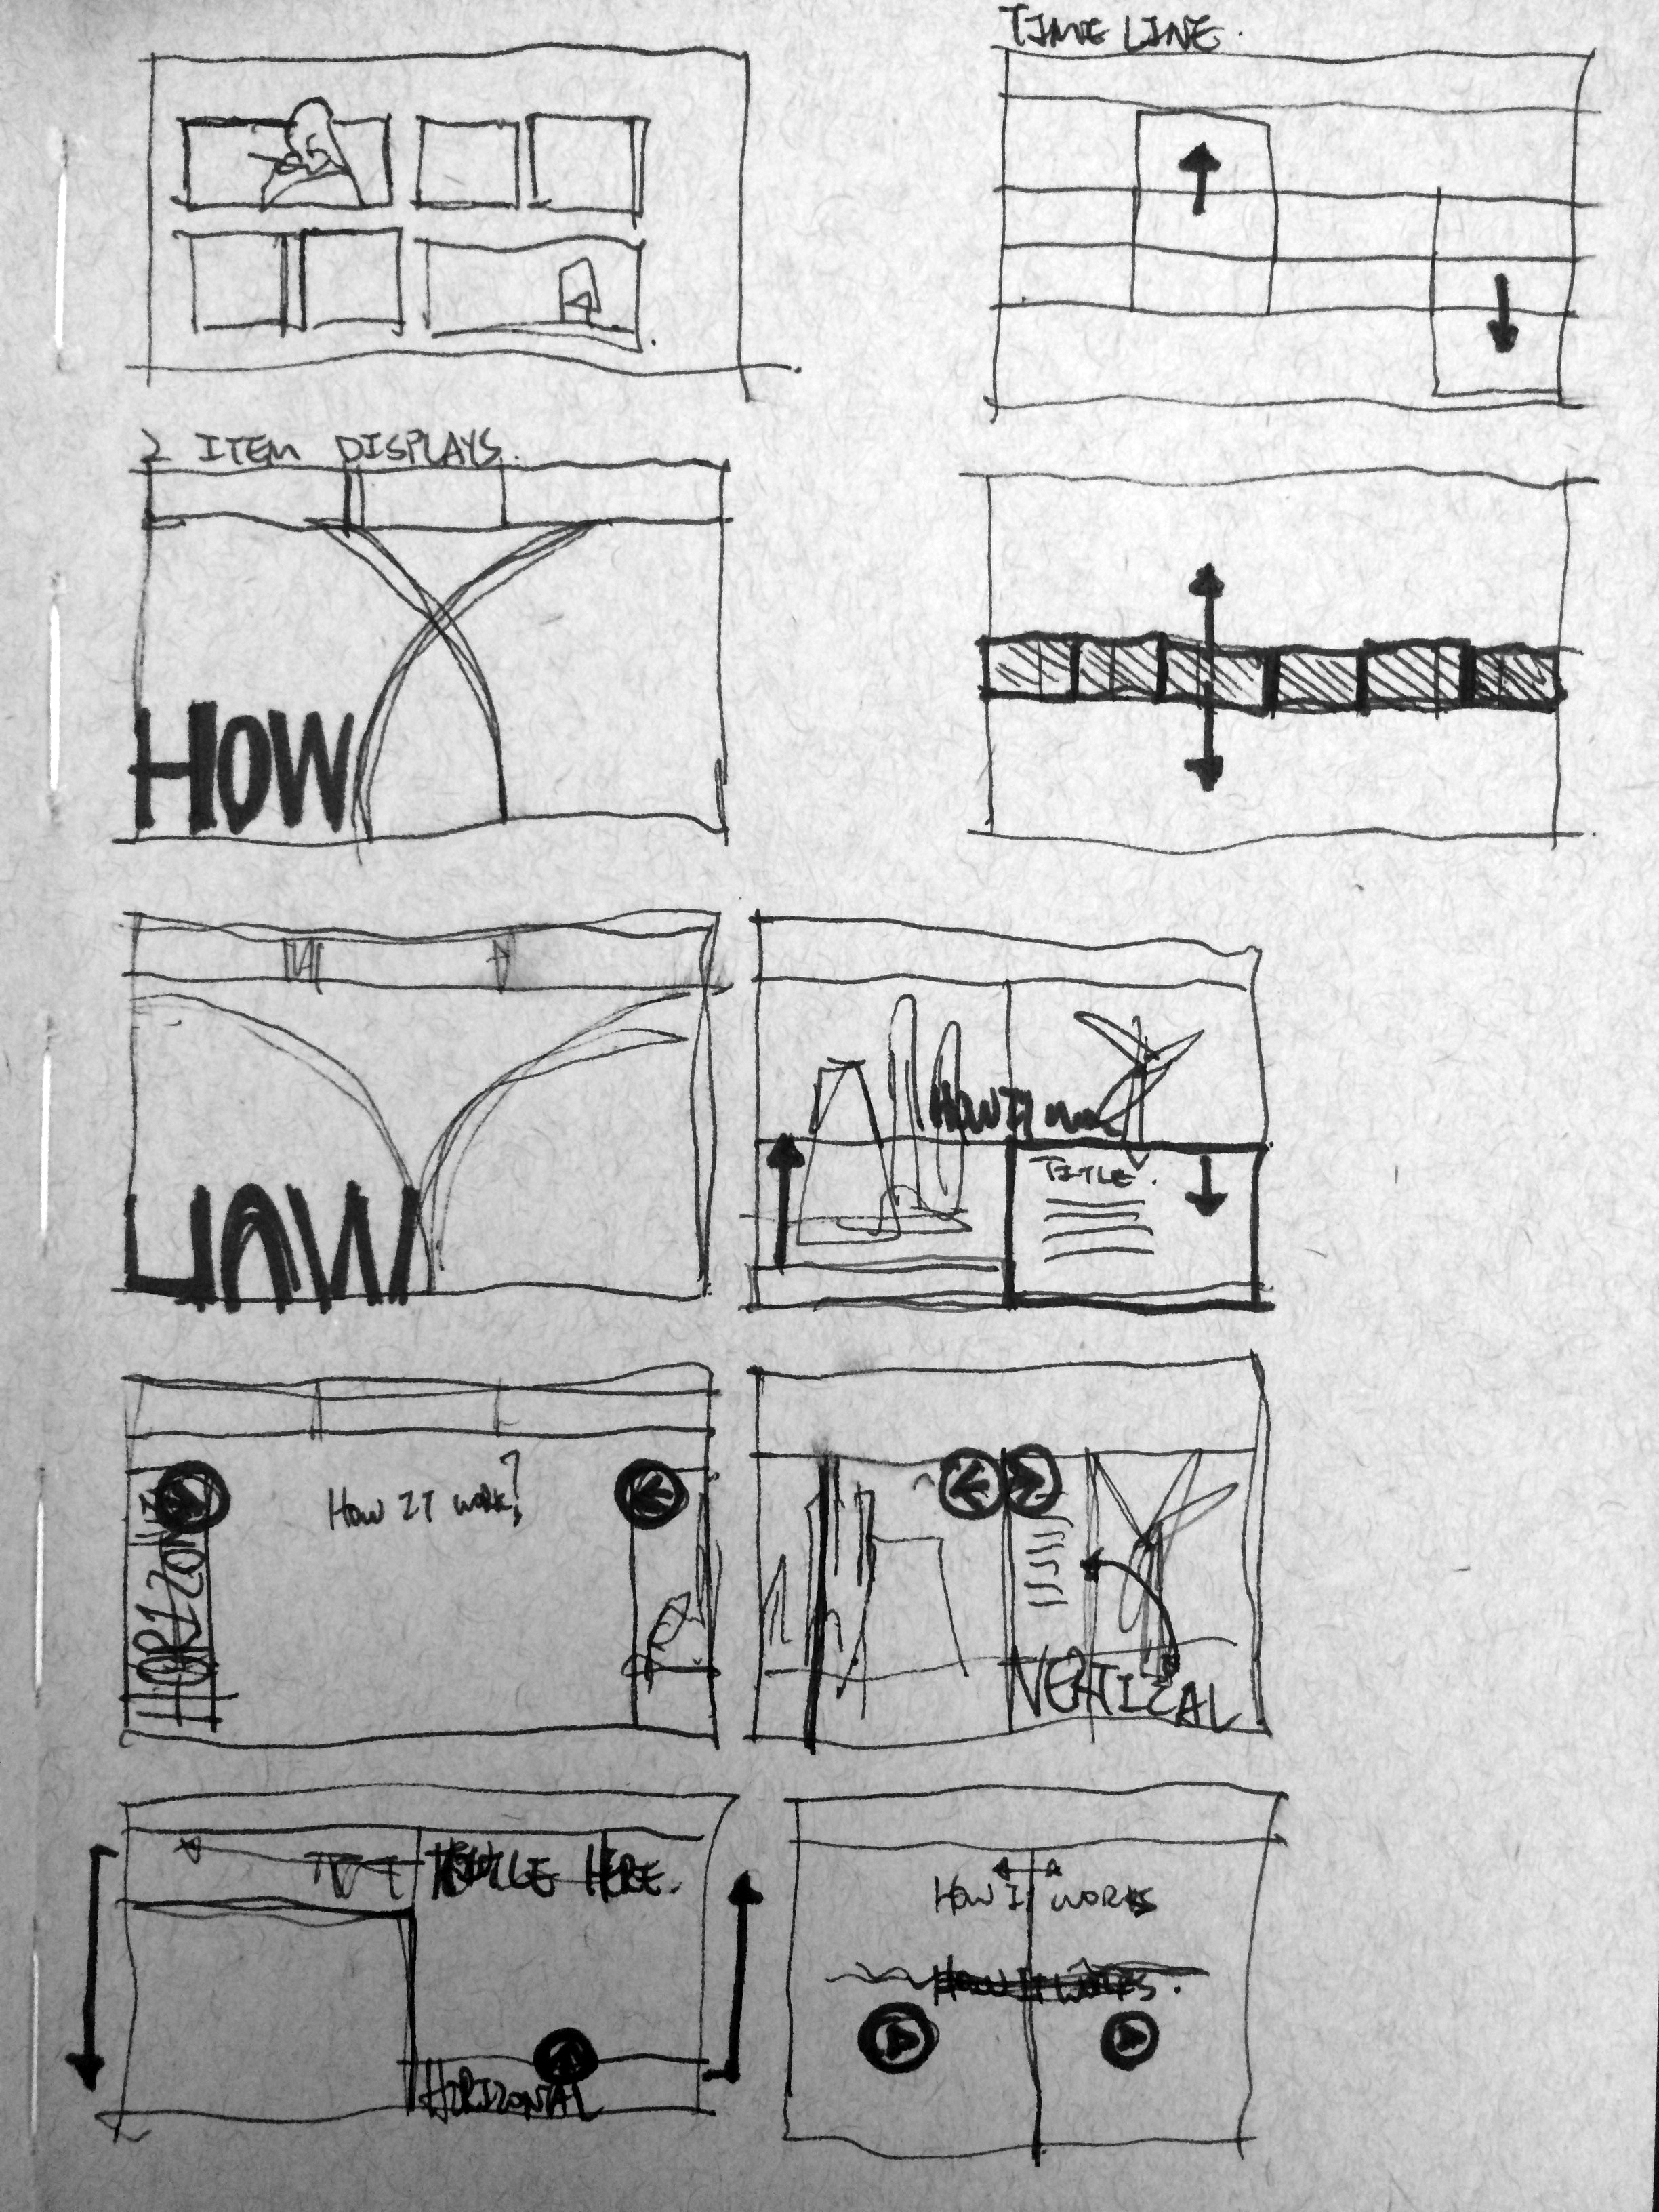 TIME LINE.
2 ITEM DISPLAYS.
HOW
HOW
TITLE.
HOW IT WORK?
HORIZON
VERTICAL
HERE.
HORIZONTAL
HOW IT WORKS
HOW IT WORKS.